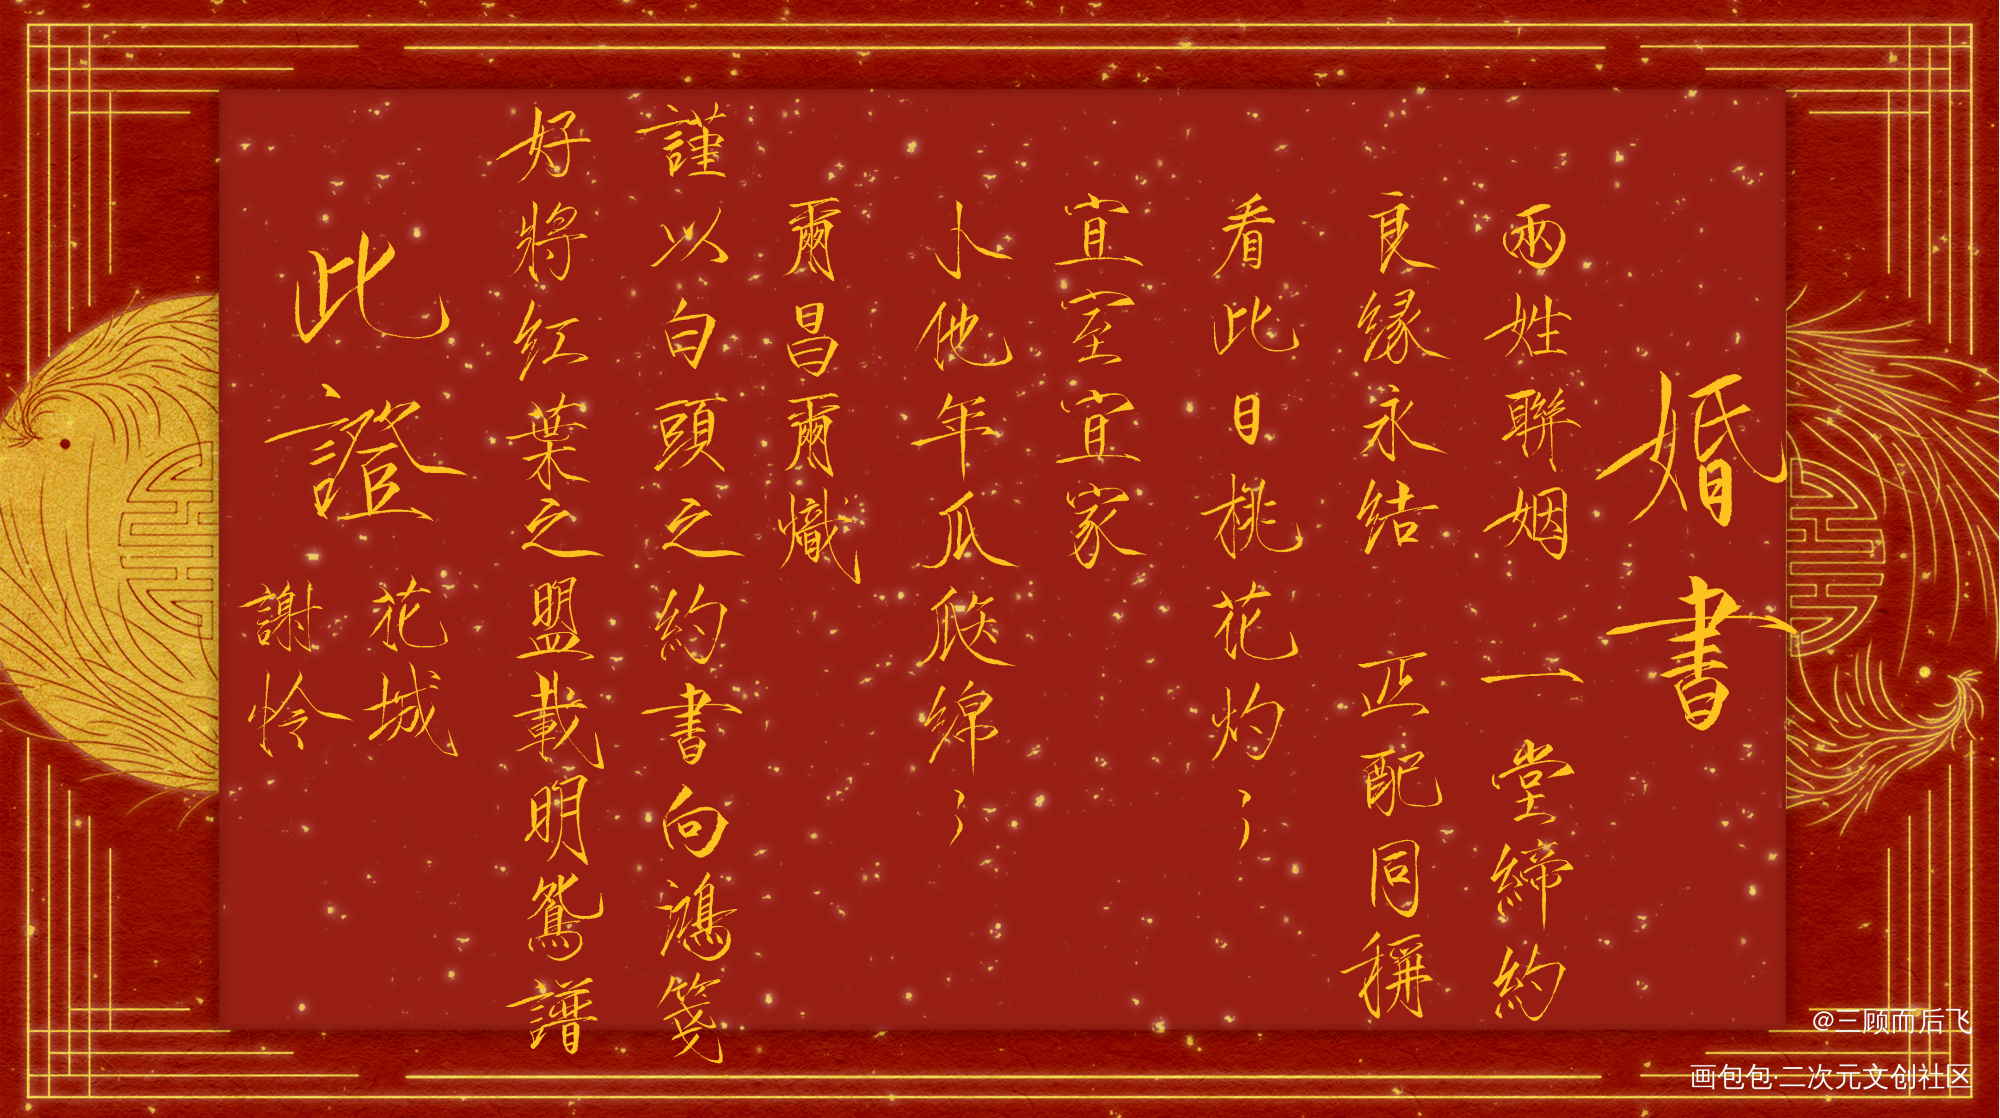 婚書
兩姓聯姻 一堂締約
良緣永結 匹配同稱
看此日桃花灼〻
宜室宜家
卜他年瓜瓞綿〻
爾昌爾熾
謹以白頭之約書向鴻箋
好將紅葉之盟載明鴛譜
此證
花城
謝怜
@三顾而后飞
画包包·二次元文创社区